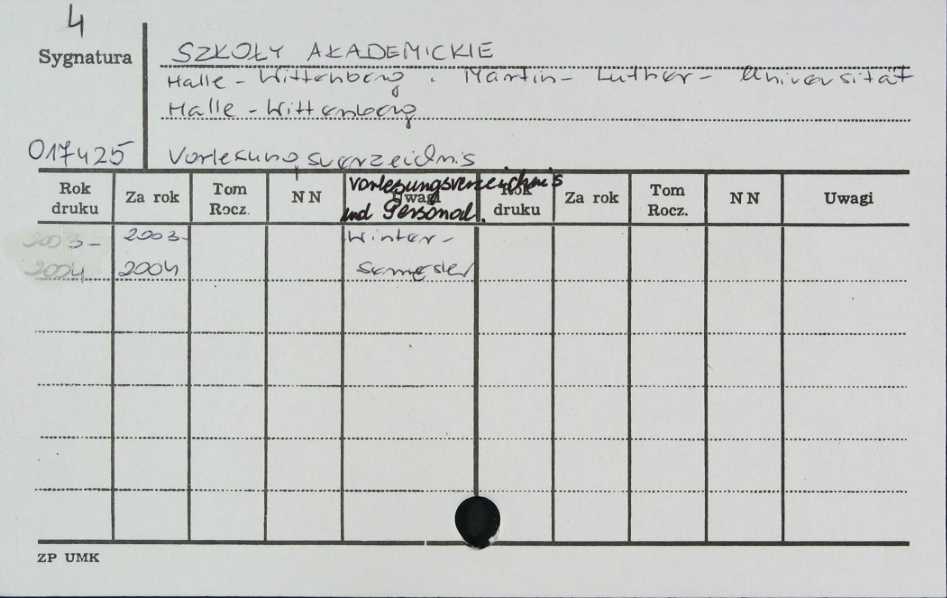 4
Sygnatura
SZKOŁY AKADEMICKIE
Halle - Wittenberg. Martin - Luther - Universität
Halle - Wittenberg
017425 Vorlesungsverzeichnis
Vorlesungsverzeichnis
und Personal.
Rok druku Za rok Tom Rocz. NN Uwagi Rok druku Za rok Tom Rocz. NN Uwagi
2003- 2003- Winter-
2004 2004 Semester
ZP UMK